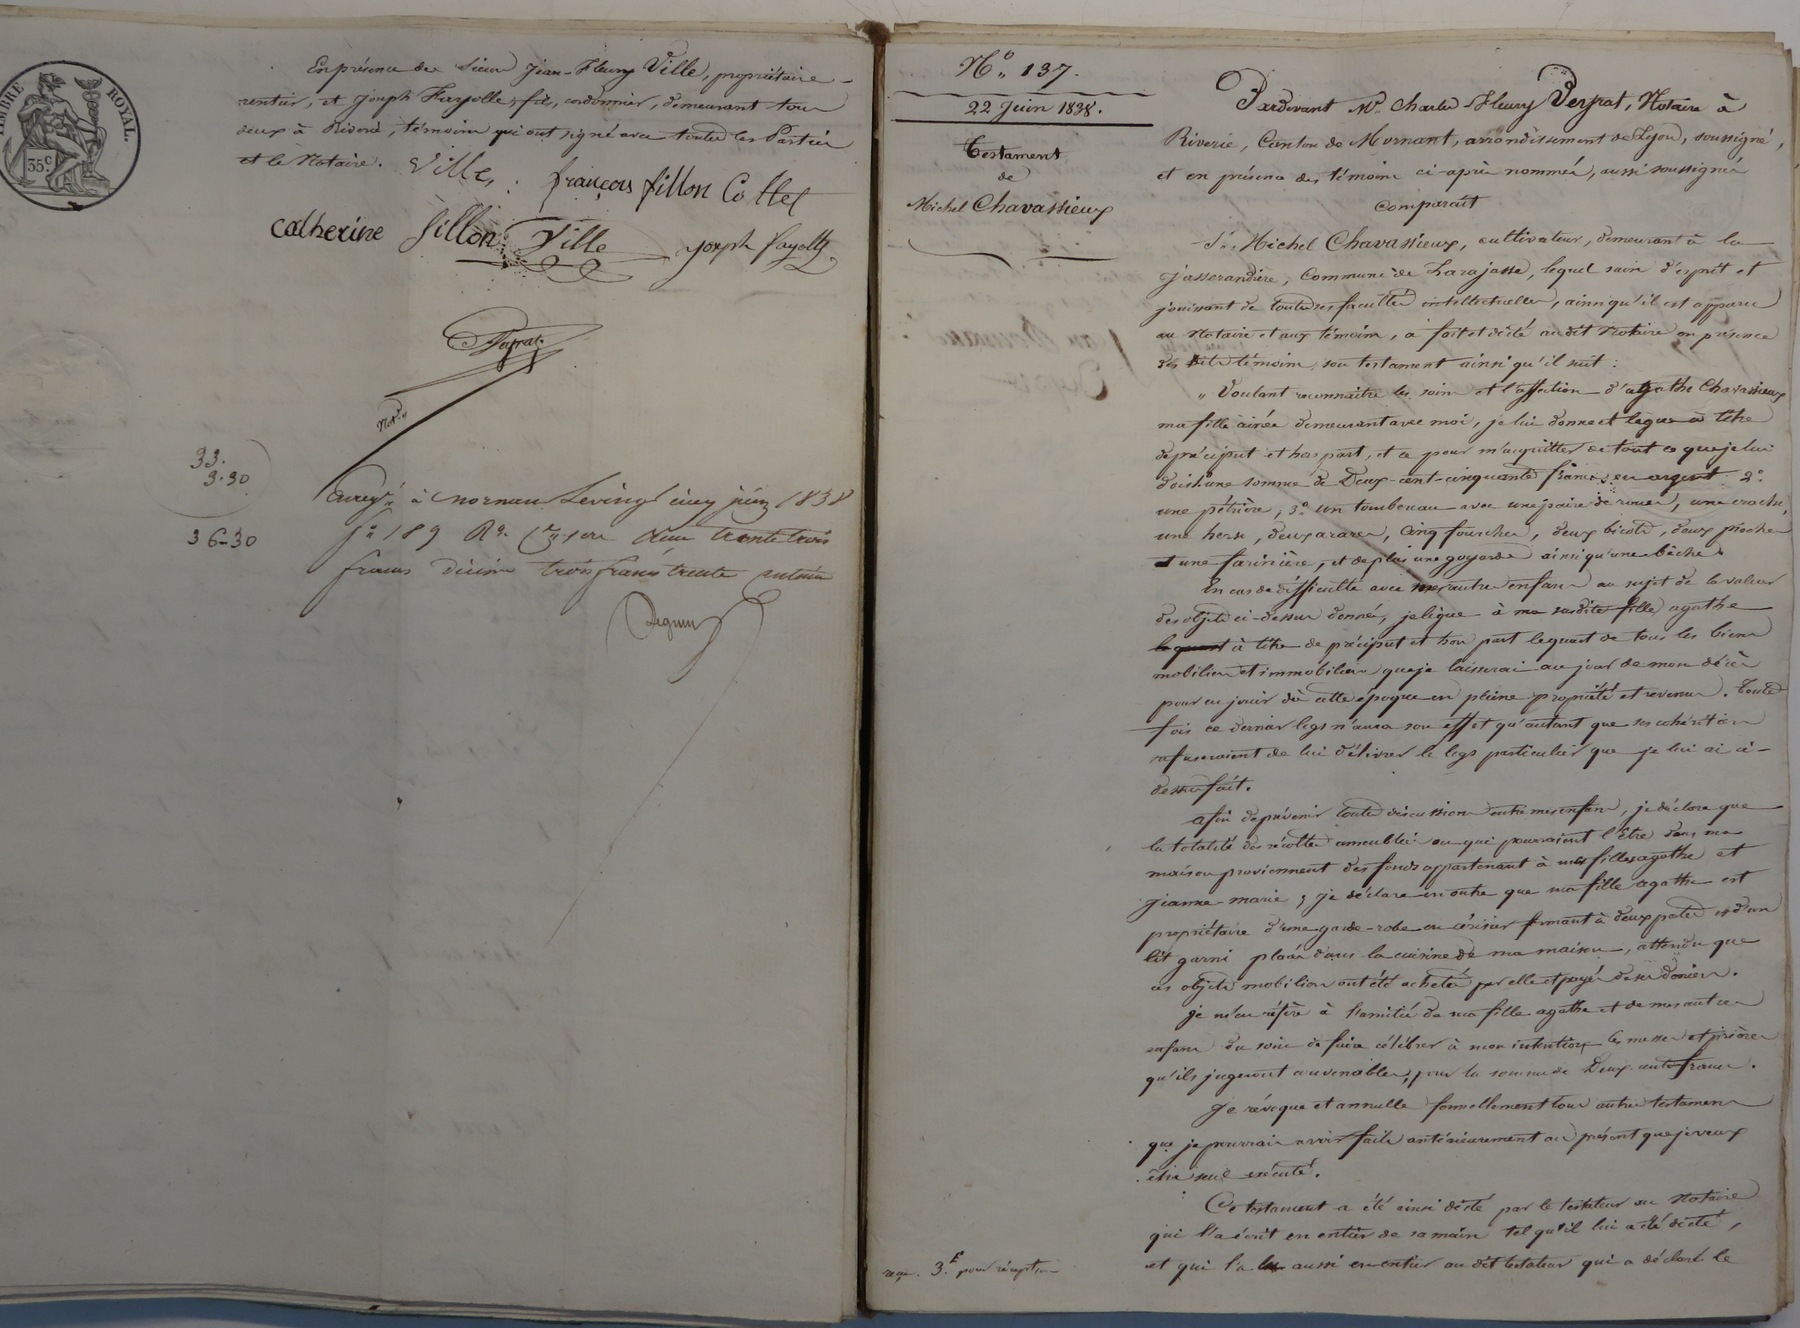 TIMBRE ROYAL.
35c.
En présence de Sieur Jean-Fleury Ville, propriétaire
rentier, et Joseph Fayolle fils, cordonnier, demeurant tous
deux à Riverie, témoins qui ont signé avec toutes les Parties
et le Notaire. Ville françois fillon Collet
catherine fillon Ville joseph fayolle
Not.re
33.
3.30
36-30
Enreg.é à Mornant le vingt cinq juin 1838
f.o 189 R.o reçu trente trois
francs décime trois francs trente centimes
N.o 137.
22 Juin 1838.
Testament
de
Michel Chavassieux
Pardevant M.e Charles Fleury Peyrat, Notaire à
Riverie, Canton de Mornant, arrondissement de Lyon, soussigné,
et en présence des témoins ci-après nommés, aussi soussignés
Comparaît
S.r Michel Chavassieux, cultivateur, demeurant à la
Jasserandière, Commune de Larajasse, lequel sain d'esprit et
jouissant de toutes ses facultés intellectuelles, ainsi qu'il est apparu
au Notaire et aux témoins, a fait et dicté audit Notaire en présence
des dits témoins, son testament ainsi qu'il suit :
" Voulant reconnaître les soins et l'affection d'agathe Chavassieux
ma fille aînée demeurant avec moi, je lui donne et lègue à titre
de préciput et hors part, et ce pour m'acquitter de tout ce que je lui
dois, une somme de Deux-cent-cinquante francs, en argent. 2.o
une pétrière, 3.o un tombereau avec une paire de roues, une
une herse, deux araires, cinq fourches, deux bicots, deux pioches
et une farinière, et de plus une goyarde ainsi qu'une bêche.
En cas de difficulté avec mes autres enfans au sujet de la valeur
des objets ci-dessus donnés, je lègue à ma susdite fille agathe
le quart à titre de préciput et hors part le quart de tous les biens
mobiliers et immobiliers que je laisserai au jour de mon décès
pour en jouir dès cette époque en pleine propriété et revenus. Toute
fois ce dernier legs n'aura son effet qu'autant que ses cohéritiers
refuseraient de lui délivrer le legs particulier que je lui ai ci-
dessus fait.
Afin de prévenir toutes discussions entre mes enfans, je déclare que
la totalité des récoltes ameublies ou qui pourraient l'être dans ma
maison proviennent des fonds appartenant à mes filles agathe et
jeanne-marie ; je déclare en outre que ma fille agathe est
propriétaire d'une garde-robe en cerisier fermant à deux portes et d'un
lit garni placés dans la cuisine de ma maison, attendu que
ces objets mobiliers ont été achetés par elle et payés de ses deniers.
je m'en réfère à l'amitié de ma fille agathe et de mes autres
enfans du soin de faire célébrer à mon intention les messes et prières
qu'ils jugeront convenables, pour la somme de Deux-cents francs.
Je révoque et annulle formellement tous autres testamens
que je pourrais avoir faits antérieurement au présent que je veux
être seul exécuté.
Ce testament a été ainsi dicté par le testateur au Notaire
qui l'a écrit en entier de sa main tel qu'il lui a été dicté,
et qui l'a lu aussi en entier au dit testateur qui a déclaré le
reçu. 3.f pour réception